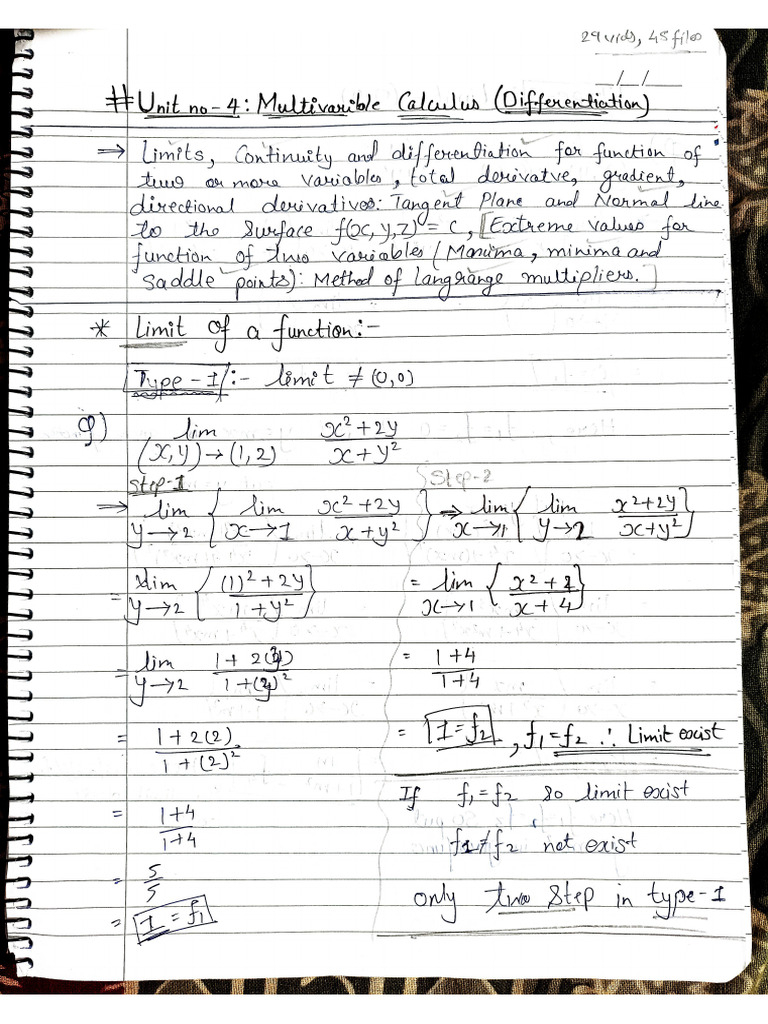 29 vids, 45 files
__/__/__
# Unit no-4: Multivarible Calculus (Differentiation)
⇒ Limits, Continuity and differentiation for function of
two or more variables, total derivatve, gradient,
directional derivatives: Tangent Plane and Normal line
to the surface f(x,y,z) = c, [Extreme values for
function of two variables (Maxima, minima and
saddle points): Method of langrange multipliers.]
* Limit of a function:-
Type-I :- limit ≠ (0,0)
Q) lim (x,y)→(1,2) x²+2y / x+y²
Step-1
⇒ lim y→2 { lim x→1 x²+2y / x+y² }
= lim y→2 { (1)²+2y / 1+y² }
= lim y→2 1+2(y) / 1+(y)²
= 1+2(2) / 1+(2)²
= 1+4 / 1+4
= 5/5
= 1 = f₁
Step-2
⇒ lim x→1 { lim y→2 x²+2y / x+y² }
= lim x→1 { x²+4 / x+4 }
= 1+4 / 1+4
= 1 = f₂, f₁=f₂ ∴ Limit exist
If f₁=f₂ so limit exist
f1≠f₂ not exist
only two step in type-1